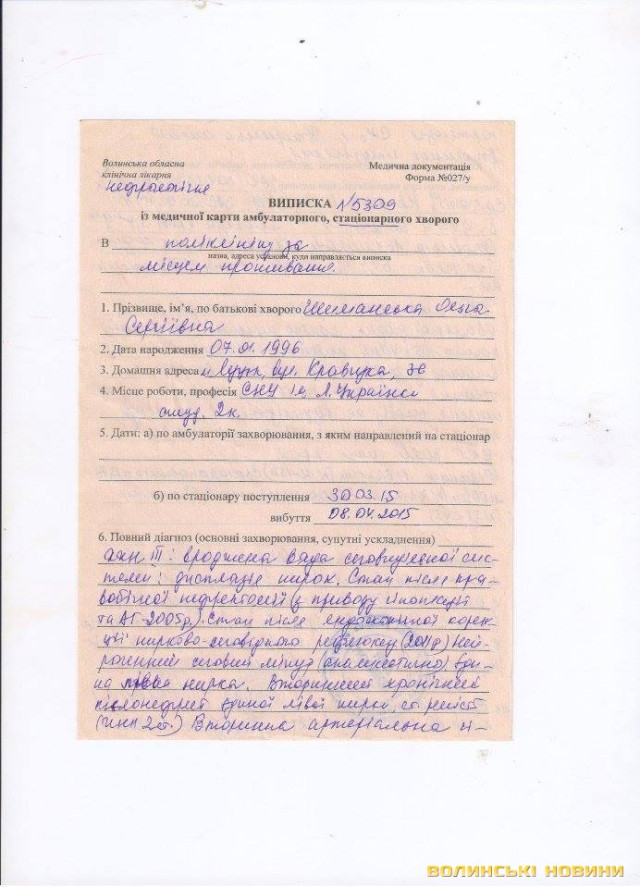 Волинська обласна
клінічна лікарня
нефрологічне
Медична документація
Форма №027/у
ВИПИСКА №5309
із медичної карти амбулаторного, стаціонарного хворого
В поліклініку за
назва, адреса установи, куди направляється виписка
місцем проживання.
1. Прізвище, ім'я, по батькові хворого Шиманська
Сергіївна
2. Дата народження 1996
3. Домашня адреса м Луцьк, вул. Кравчука,
4. Місце роботи, професія СНУ ім. Л. Українки
студ. 2к.
5. Дати: а) по амбулаторії захворювання, з яким направлений на стаціонар
б) по стаціонару поступлення 30 03. 15
вибуття 08. 04. 2015
6. Повний діагноз (основні захворювання, супутні ускладнення)
ХХН III: вроджена вада сечовидільної сис-
теми: дисплазія нирок. Стан після пра-
вобічної нефректомії (з приводу гіпоплазії
та АГ-2005р.). Стан після ендоскопічної корек-
ції нирково-сечовідного рефлюксу (2011р) Ней-
рогенний сечовий міхур (анамнестично). Єди-
на нирка. Вторинний хронічний
пієлонефрит єдиної лівої нирки, ст. ремісії
2ст.) Вторинна артеріальна гі-
ВОЛИНСЬКІ НОВИНИ